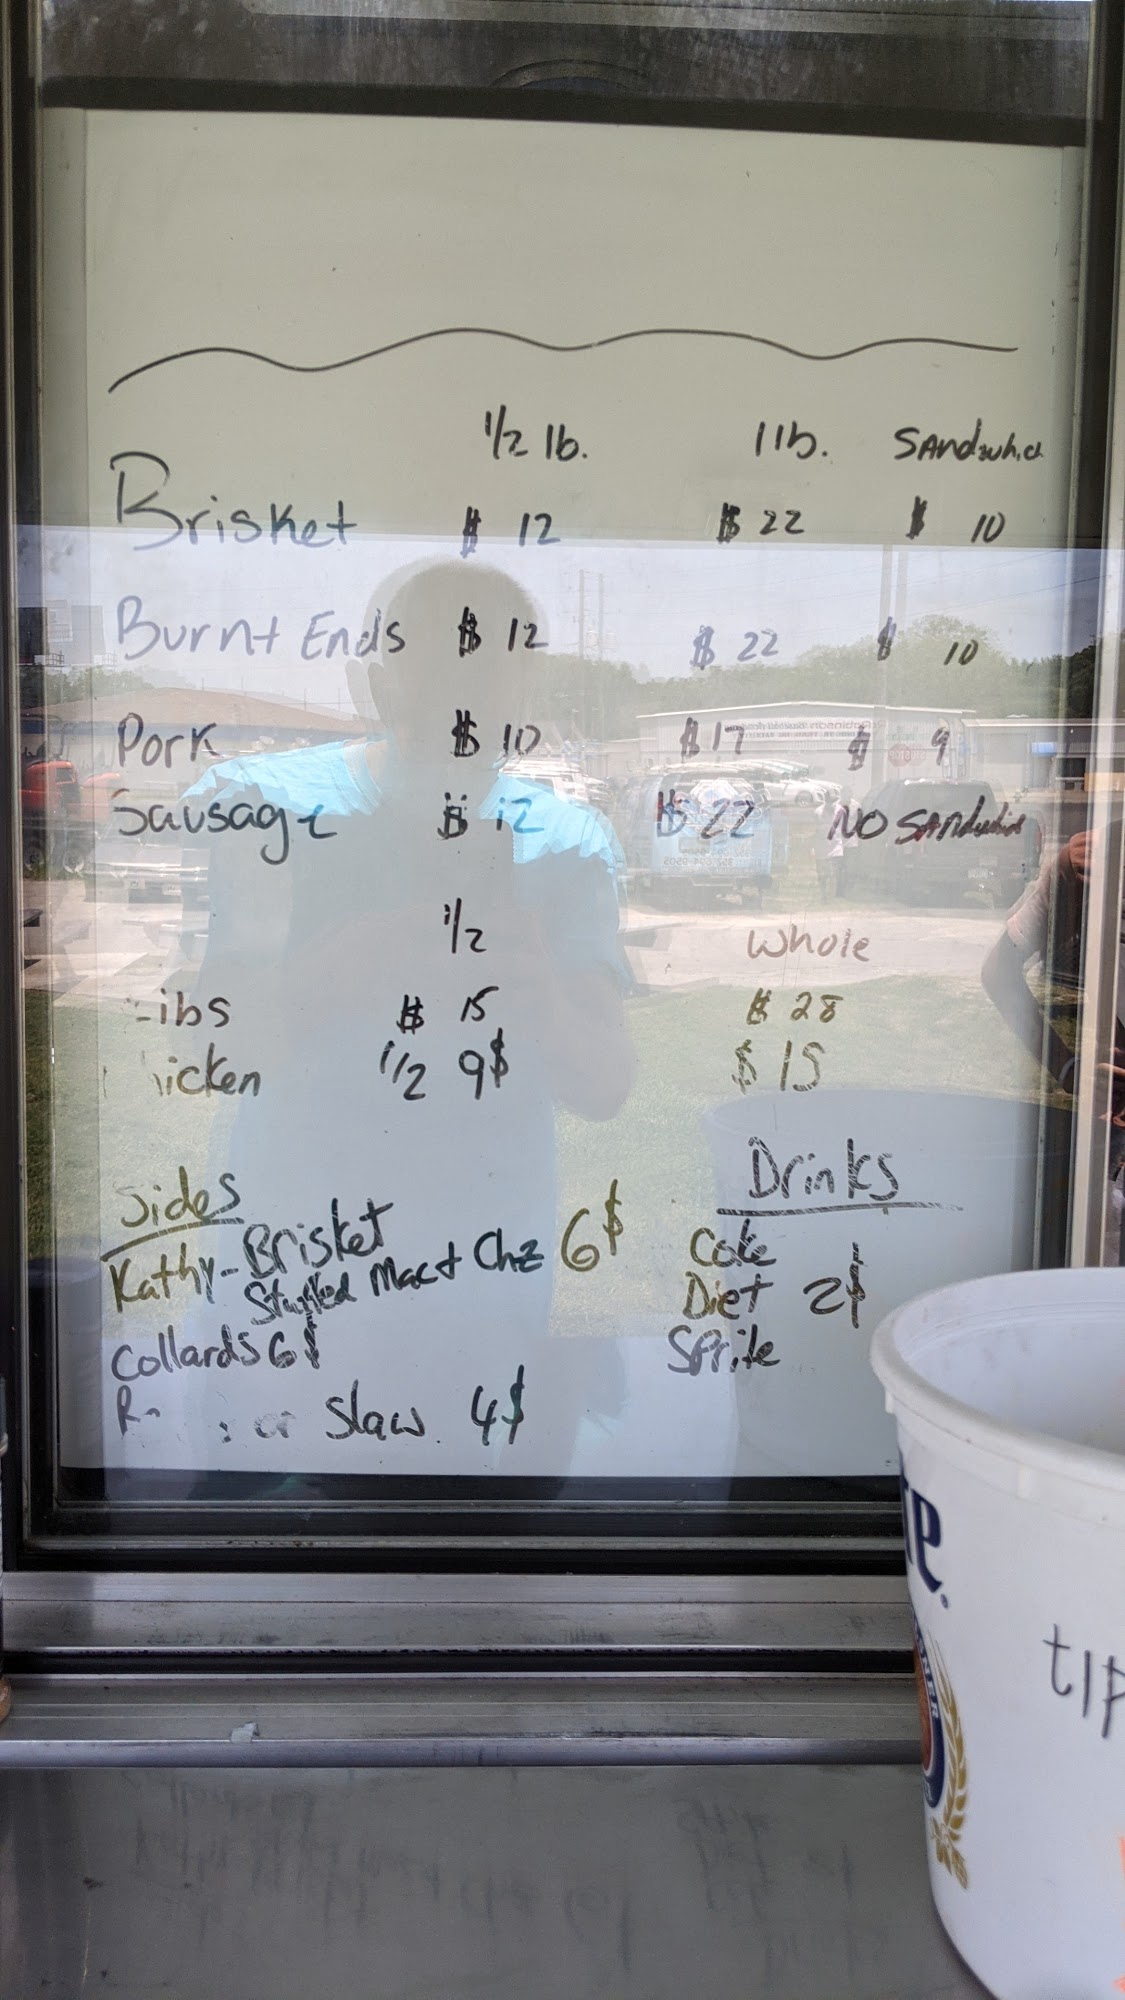 1/2 lb. 1 lb. SANdwhich
Brisket $ 12 $ 22 $ 10
Burnt Ends $ 12 $ 22 $ 10
Pork $ 10 $ 17 $ 9
Sausage $ 12 $ 22 NO SANdwhich
1/2 whole
ibs $ 15 $ 28
icken 1/2 9$ $ 15
Sides
Kathy-Brisket
Stuffed Mac + Chz 6$
Collards 6$
or Slaw. 4$
Drinks
Coke
Diet 2$
Sprite
tip